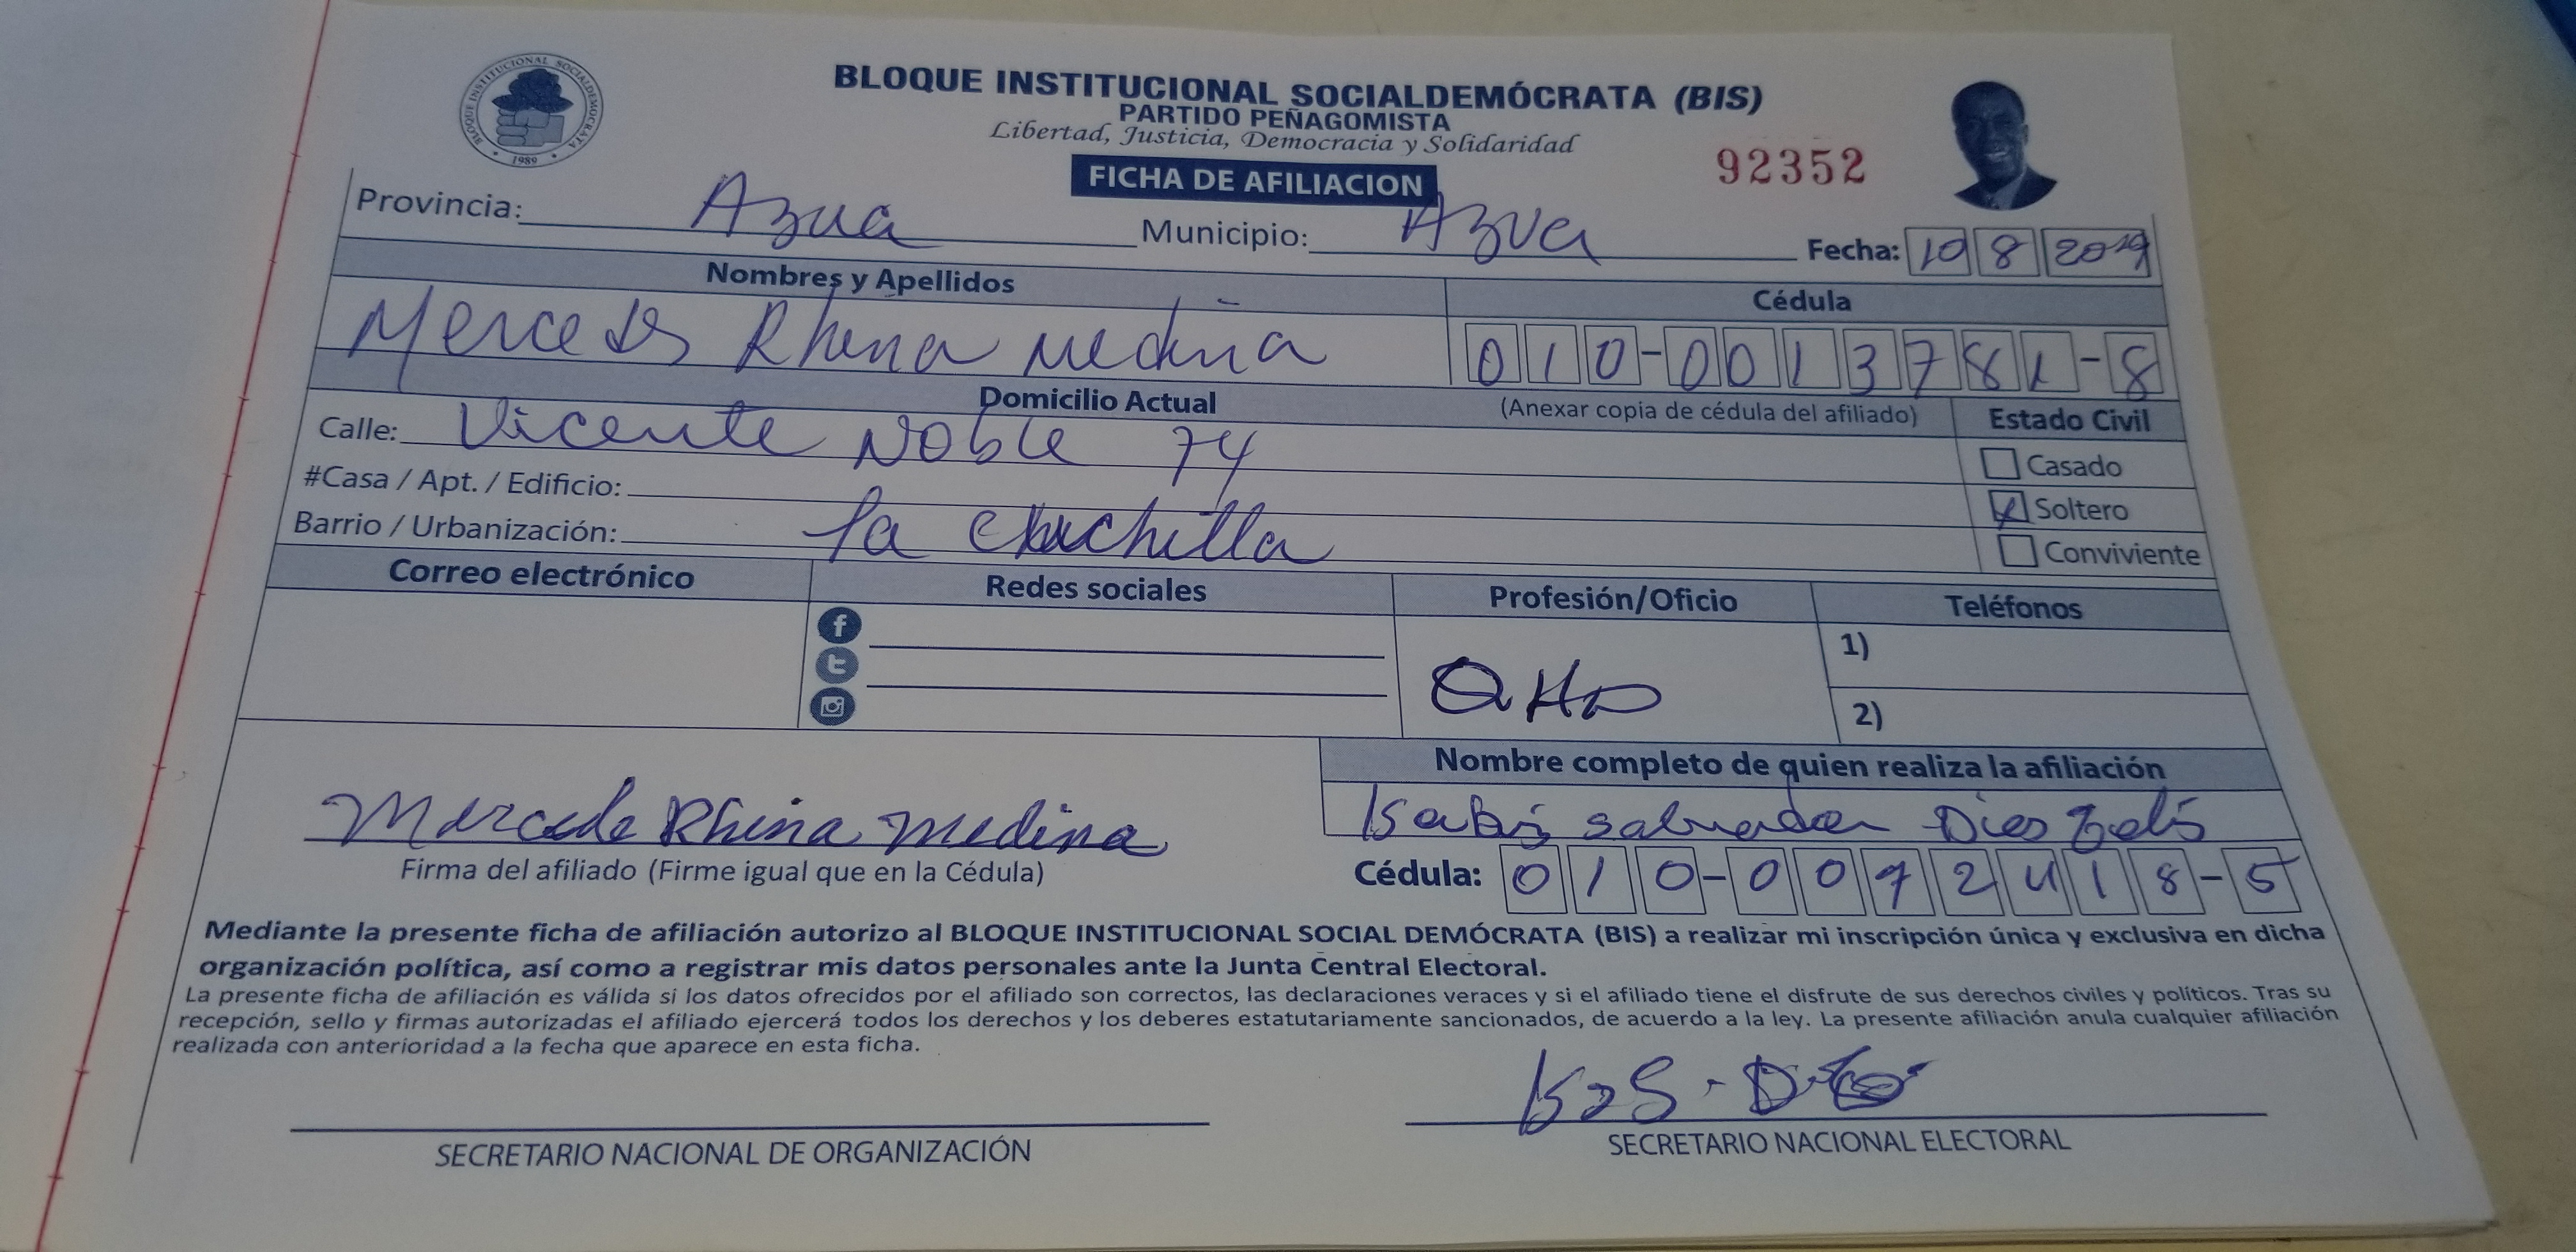 BLOQUE INSTITUCIONAL SOCIALDEMÓCRATA
1989
BLOQUE INSTITUCIONAL SOCIALDEMÓCRATA (BIS)
PARTIDO PEÑAGOMISTA
Libertad, Justicia, Democracia y Solidaridad
92352
FICHA DE AFILIACION
Provincia: Azua Municipio: Azua Fecha: 10 8 2019
Nombres y Apellidos Cédula
Mercedes Rhina Medina 010-0013781-8
Domicilio Actual (Anexar copia de cédula del afiliado) Estado Civil
Calle: Vicente Noble 74
Casado
#Casa / Apt. / Edificio:
Soltero
Barrio / Urbanización: la cuchilla
Conviviente
Correo electrónico Redes sociales Profesión/Oficio Teléfonos
1)
2)
Nombre completo de quien realiza la afiliación
salvador
Mercede Rhina Medina
Firma del afiliado (Firme igual que en la Cédula)
Cédula: 010-0072418-5
Mediante la presente ficha de afiliación autorizo al BLOQUE INSTITUCIONAL SOCIAL DEMÓCRATA (BIS) a realizar mi inscripción única y exclusiva en dicha
organización política, así como a registrar mis datos personales ante la Junta Central Electoral.
La presente ficha de afiliación es válida si los datos ofrecidos por el afiliado son correctos, las declaraciones veraces y si el afiliado tiene el disfrute de sus derechos civiles y políticos. Tras su
recepción, sello y firmas autorizadas el afiliado ejercerá todos los derechos y los deberes estatutariamente sancionados, de acuerdo a la ley. La presente afiliación anula cualquier afiliación
realizada con anterioridad a la fecha que aparece en esta ficha.
SECRETARIO NACIONAL DE ORGANIZACIÓN
SECRETARIO NACIONAL ELECTORAL